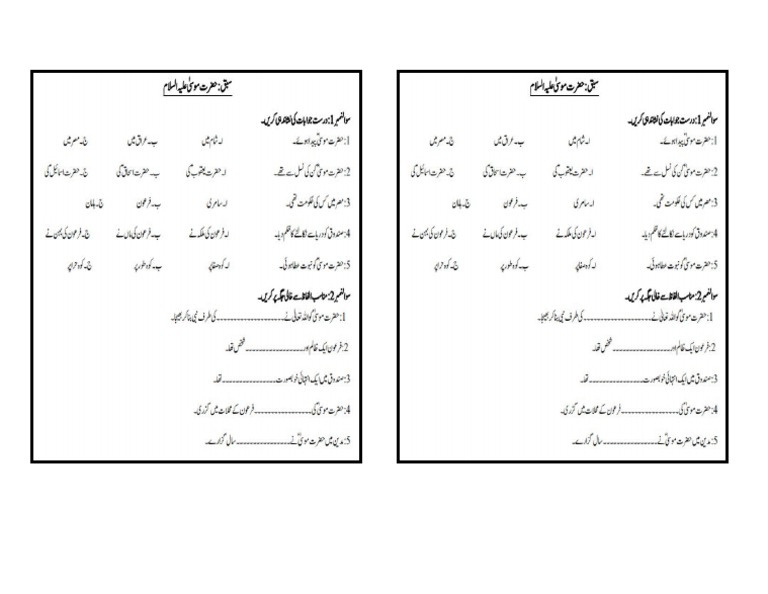 سبق: حضرت موسیٰ علیہ السلام
سوالنمبر 1: درست جوابات کی نشاندہی کریں۔
1: حضرت موسیٰؑ پیدا ہوئے۔ ا۔ شام میں ب۔ عراق میں ج۔ مصر میں
2: حضرت موسیٰؑ کن کی نسل سے تھے۔ ا۔ حضرت یعقوبؑ کی ب۔ حضرت اسحاقؑ کی ج۔ حضرت اسمائیلؑ کی
3: مصر میں کس کی حکومت تھی۔ ا۔ سامری ب۔ فرعون ج۔ ہامان
4: صندوق کو دریا سے نکالنے کا حکم دیا۔ ا۔ فرعون کی ملکہ نے ب۔ فرعون کی ماں نے ج۔ فرعون کی بہن نے
5: حضرت موسیٰؑ کو نبوت عطا ہوئی۔ ا۔ کوہ صفا پر ب۔ کوہ طور پر ج۔ کوہ حرا پر
سوالنمبر 2: مناسب الفاظ سے خالی جگہ پر کریں۔
1: حضرت موسیٰؑ کو اللہ تعالیٰ نے------------------کی طرف نبی بنا کر بھیجا۔
2: فرعون ایک ظالم اور------------------شخص تھا۔
3: صندوق میں ایک انتہائی خوبصورت------------------تھا۔
4: حضرت موسیٰؑ کی------------------فرعون کے محلات میں گزری۔
5: مدین میں حضرت موسیٰؑ نے------------------سال گزارے۔
سبق: حضرت موسیٰ علیہ السلام
سوالنمبر 1: درست جوابات کی نشاندہی کریں۔
1: حضرت موسیٰؑ پیدا ہوئے۔ ا۔ شام میں ب۔ عراق میں ج۔ مصر میں
2: حضرت موسیٰؑ کن کی نسل سے تھے۔ ا۔ حضرت یعقوبؑ کی ب۔ حضرت اسحاقؑ کی ج۔ حضرت اسمائیلؑ کی
3: مصر میں کس کی حکومت تھی۔ ا۔ سامری ب۔ فرعون ج۔ ہامان
4: صندوق کو دریا سے نکالنے کا حکم دیا۔ ا۔ فرعون کی ملکہ نے ب۔ فرعون کی ماں نے ج۔ فرعون کی بہن نے
5: حضرت موسیٰؑ کو نبوت عطا ہوئی۔ ا۔ کوہ صفا پر ب۔ کوہ طور پر ج۔ کوہ حرا پر
سوالنمبر 2: مناسب الفاظ سے خالی جگہ پر کریں۔
1: حضرت موسیٰؑ کو اللہ تعالیٰ نے------------------کی طرف نبی بنا کر بھیجا۔
2: فرعون ایک ظالم اور------------------شخص تھا۔
3: صندوق میں ایک انتہائی خوبصورت------------------تھا۔
4: حضرت موسیٰؑ کی------------------فرعون کے محلات میں گزری۔
5: مدین میں حضرت موسیٰؑ نے------------------سال گزارے۔